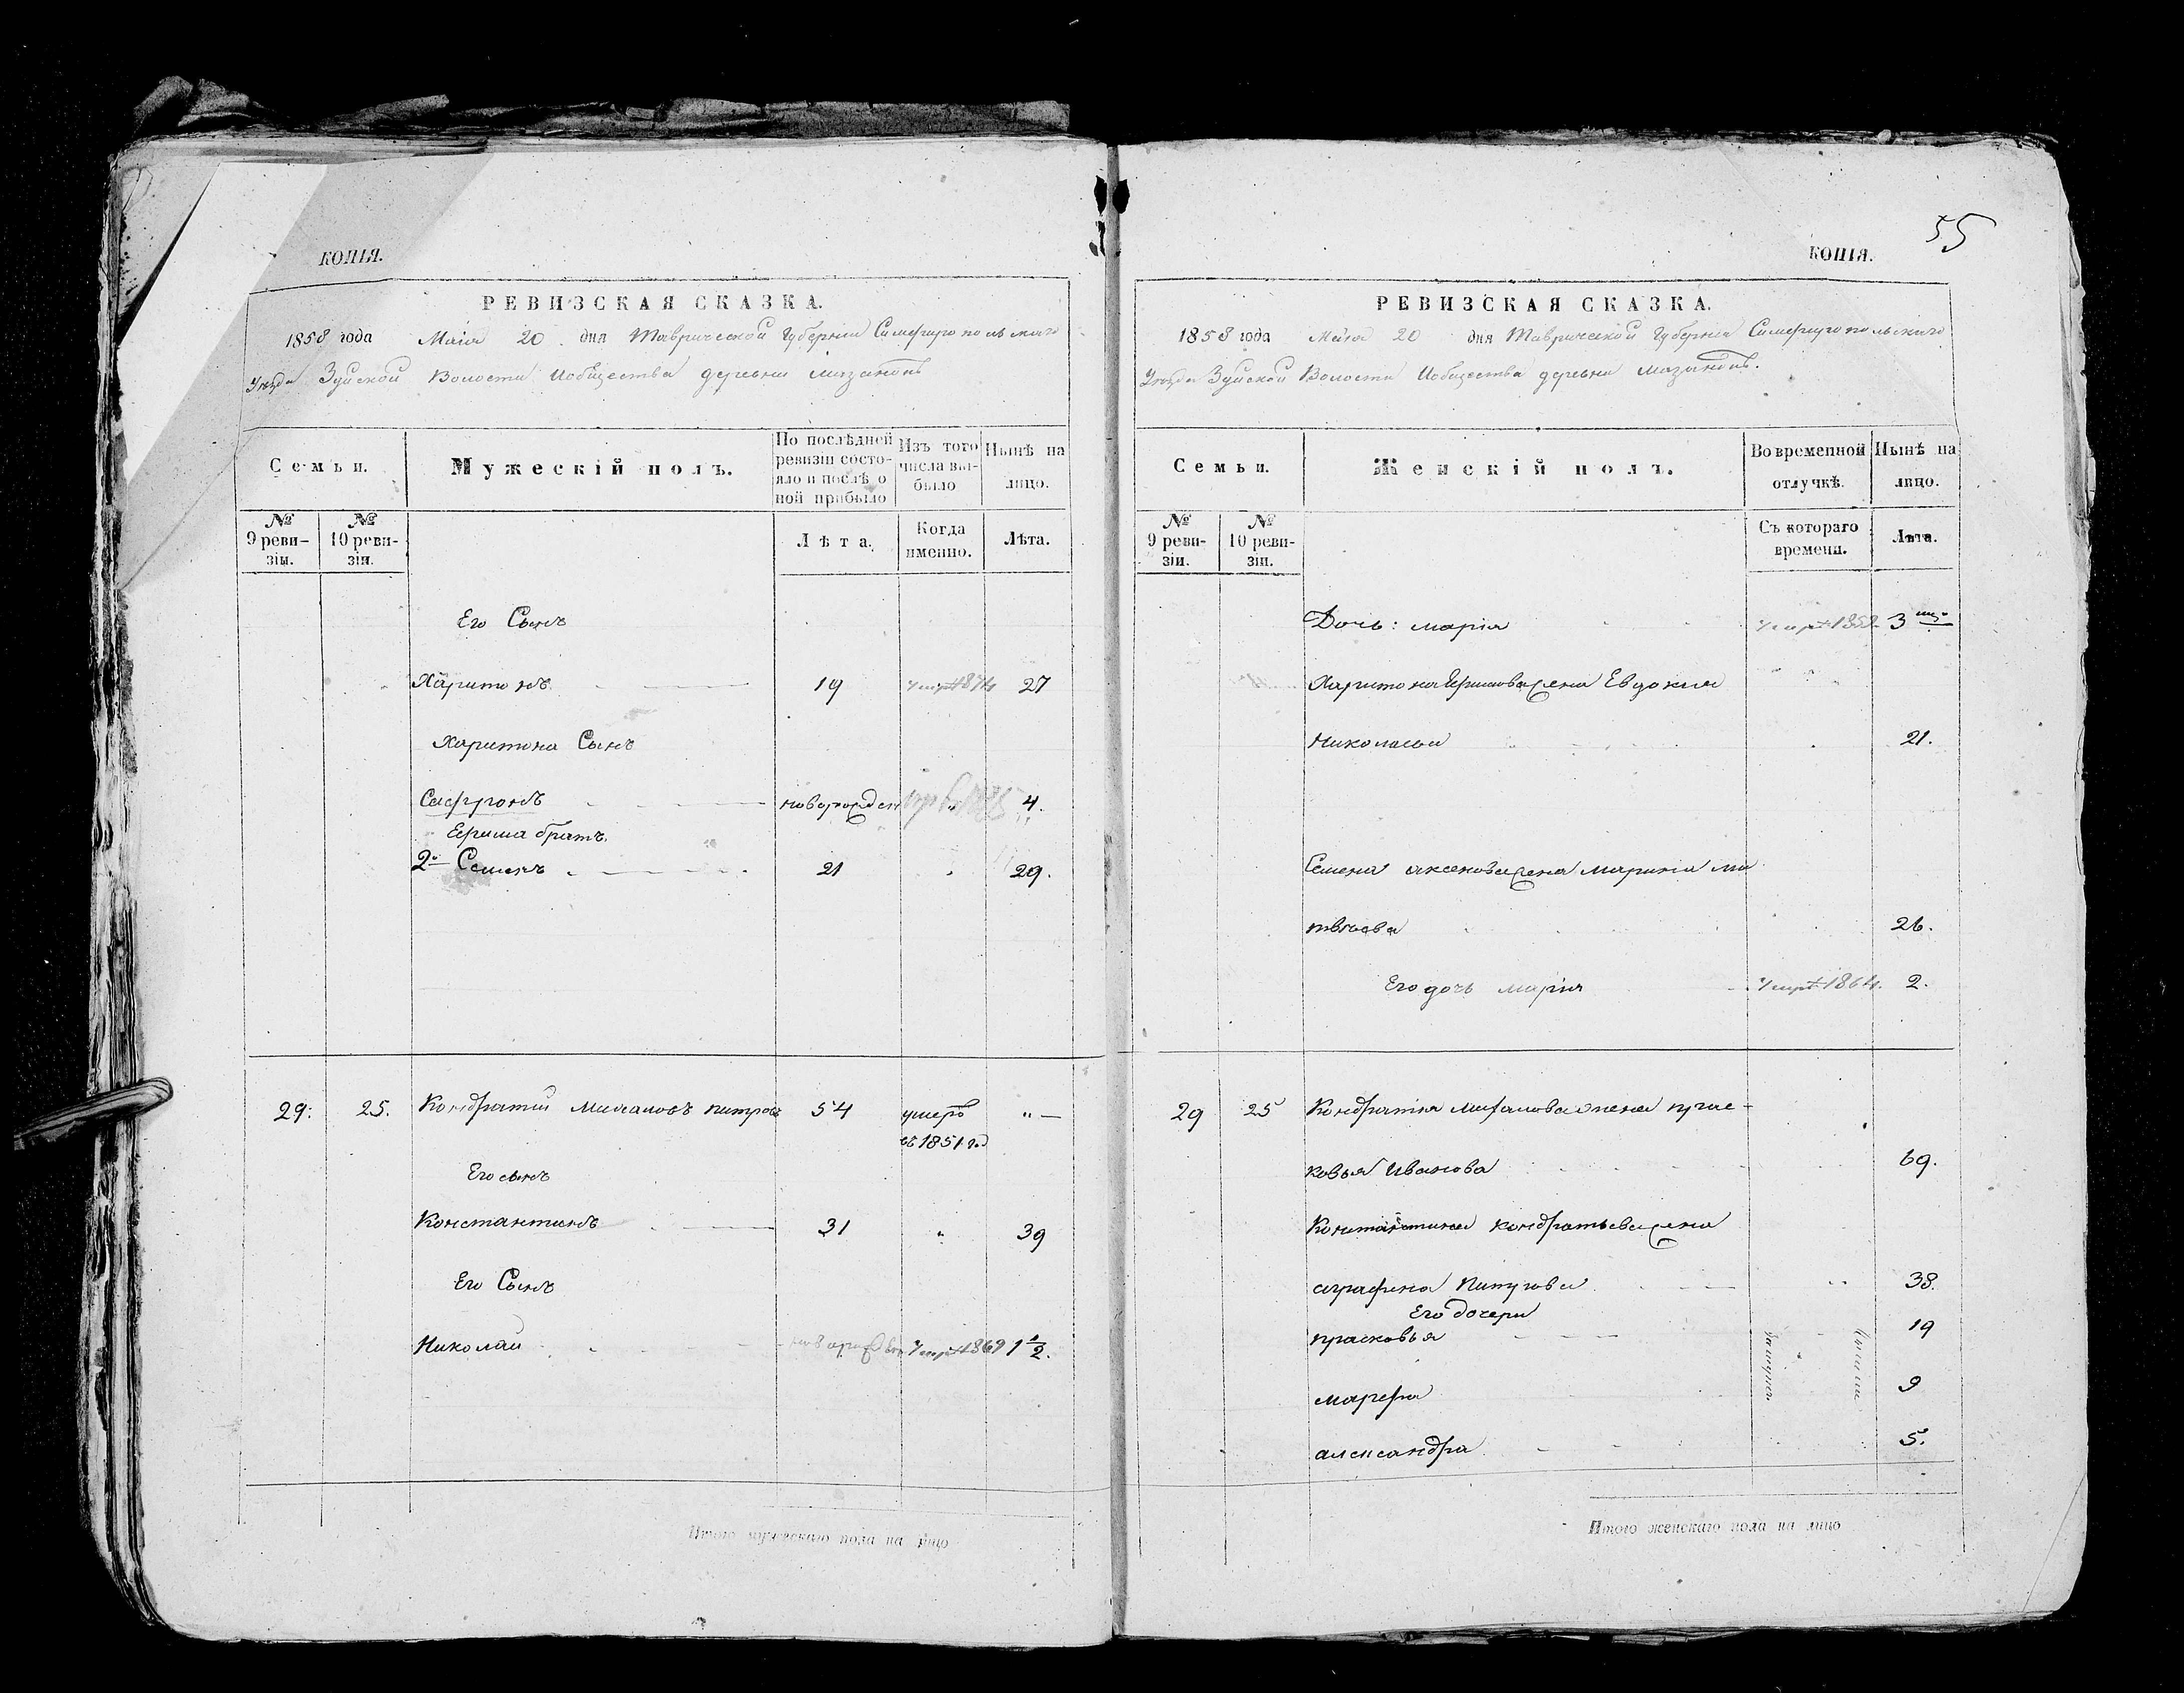 КОПІЯ.
РЕВИЗСКАЯ СКАЗКА.
1858 года Маія 20 дня Таврической Губерніи Симферопольскаго
Уѣзда Зуйской Волости и общества деревни Мазанокъ
Семьи.
Мужескій полъ.
По послѣдней ревизіи состояло и послѣ оной прибыло
Изъ того числа выбыло
Нынѣ на лицо.
№ 9 ревизіи.
№ 10 ревизіи.
Лѣта.
Когда именно.
Лѣта.
Его Сынъ
Харитонъ 19 27
Харитона Сынъ
Сафронъ новорожден 4.
Ефима братъ
2й Семенъ 21 29.
29. 25. Кондратій Михаловъ 54 умеръ "
въ 1851 год
Его сынъ
Константинъ 31 " 39
Его Сынъ
Николай 1 1/2.
Итого мужескаго пола на лицо
55
КОПІЯ.
РЕВИЗСКАЯ СКАЗКА.
1858 года Маія 20 дня Таврической Губерніи Симферопольскаго
Уѣзда Зуйской Волости и общества деревни Мазанокъ.
Семьи.
Женскій полъ.
Во временной отлучкѣ.
Нынѣ на лицо.
№ 9 ревизіи.
№ 10 ревизіи.
Съ котораго времени.
Лѣта.
Дочь: марія 3
Харитона Ефимова жена Евдокия
Николаева 21.
Семена аксенова жена Марина ма
твѣева 26.
Его дочь марія 1864. 2.
29 25 Кондратія Михалова жена прас-
ковья Иванова 69.
Константина кондратьева жена
аграфена 38.
Его дочери
прасковья 19
марфа 9
александра 5.
Итого женскаго пола на лицо